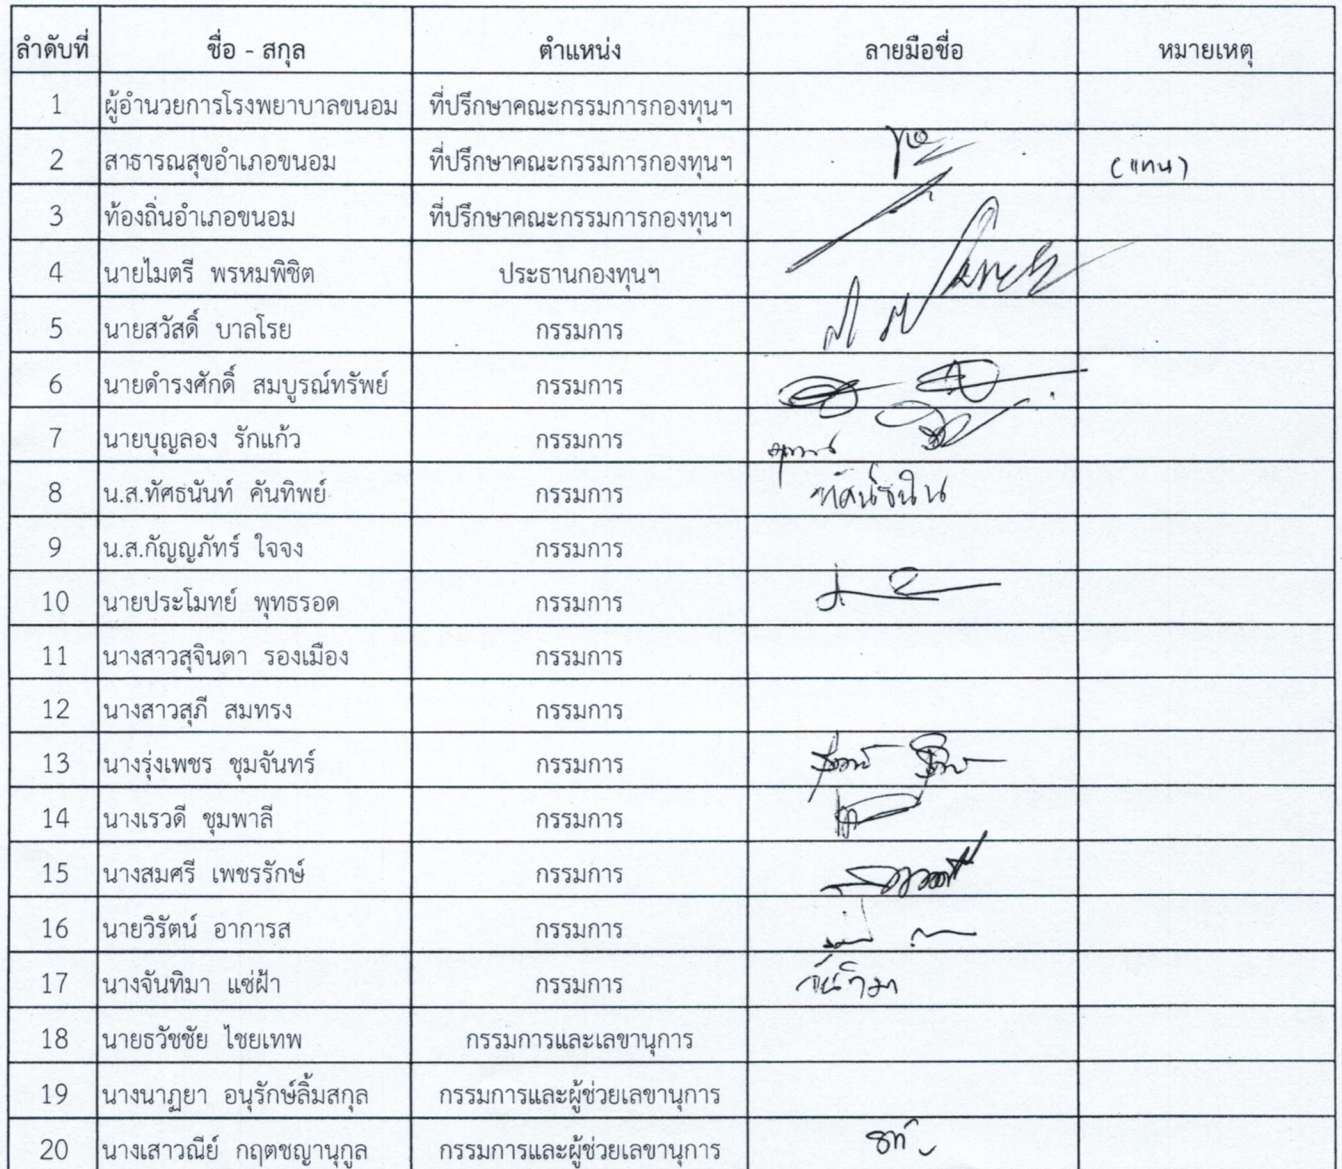 ลำดับที่ ชื่อ - สกุล ตำแหน่ง ลายมือชื่อ หมายเหตุ
1 ผู้อำนวยการโรงพยาบาลขนอม ที่ปรึกษาคณะกรรมการกองทุนฯ
2 สาธารณสุขอำเภอขนอม ที่ปรึกษาคณะกรรมการกองทุนฯ (แทน)
3 ท้องถิ่นอำเภอขนอม ที่ปรึกษาคณะกรรมการกองทุนฯ
4 นายไมตรี พรหมพิชิต ประธานกองทุนฯ
5 นายสวัสดิ์ บาลโรย กรรมการ
6 นายดำรงศักดิ์ สมบูรณ์ทรัพย์ กรรมการ
7 นายบุญลอง รักแก้ว กรรมการ
8 น.ส.ทัศธนันท์ คันทิพย์ กรรมการ
9 น.ส.กัญญภัทร์ ใจจง กรรมการ
10 นายประโมทย์ พุทธรอด กรรมการ
11 นางสาวสุจินดา รองเมือง กรรมการ
12 นางสาวสุภี สมทรง กรรมการ
13 นางรุ่งเพชร ชุมจันทร์ กรรมการ
14 นางเรวดี ชุมพาลี กรรมการ
15 นางสมศรี เพชรรักษ์ กรรมการ
16 นายวิรัตน์ อาการส กรรมการ
17 นางจันทิมา แซ่ฝ้า กรรมการ จันทิมา
18 นายธวัชชัย ไชยเทพ กรรมการและเลขานุการ
19 นางนาฏยา อนุรักษ์ลิ้มสกุล กรรมการและผู้ช่วยเลขานุการ
20 นางเสาวณีย์ กฤตชญานุกูล กรรมการและผู้ช่วยเลขานุการ